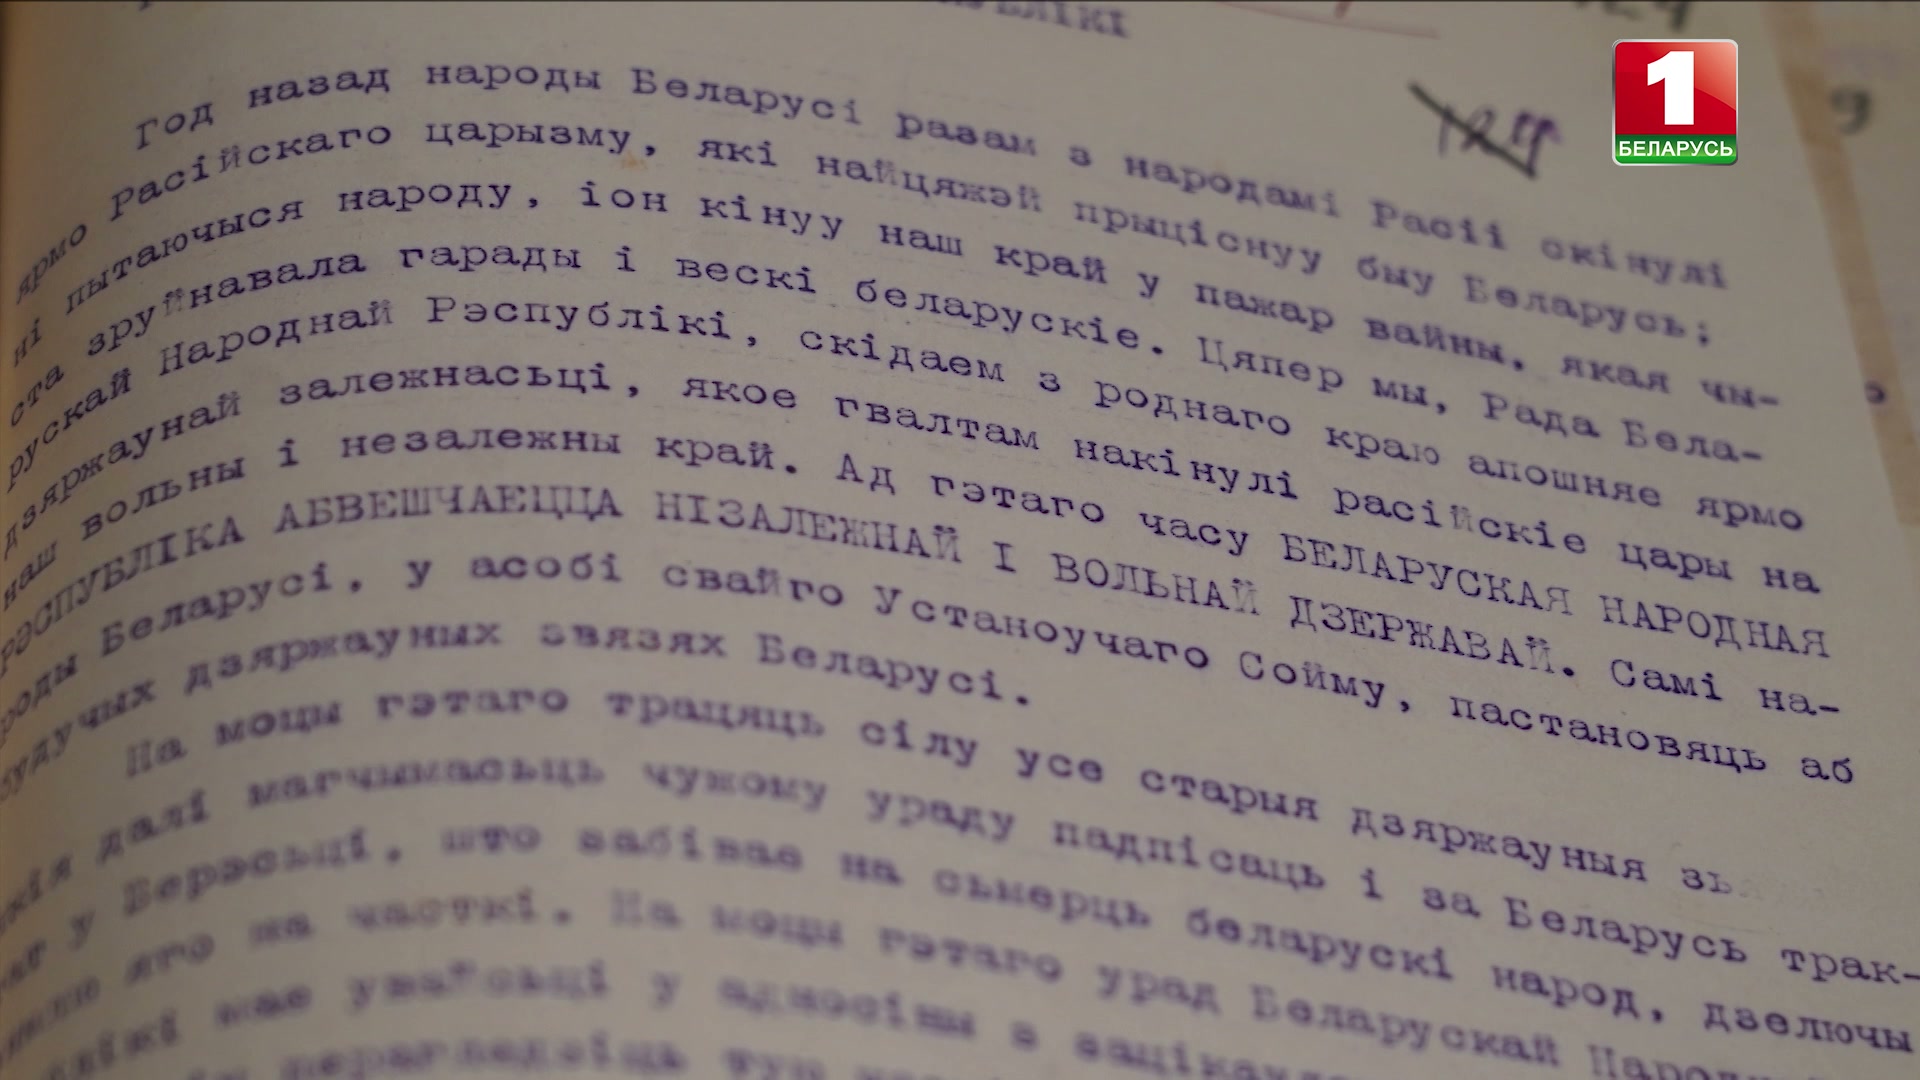 Год назад народы Беларусі разам з народамі Расіі скінулі
ярмо Расійскаго царызму, які найцяжэй прыціснуу быу Беларусь;
ні пытаючыся народу, іон кінуу наш край у пажар вайны, якая чы-
ста зруйнавала гарады і вескі беларускіе. Цяпер мы, Рада Бела-
рускай Народнай Рэспублікі, скідаем з роднаго краю апошняе ярмо
дзяржаунай залежнасьці, якое гвалтам накінулі расійскіе цары на
наш вольны і незалежны край. Ад гэтаго часу БЕЛАРУСКАЯ НАРОДНАЯ
РЭСПУБЛІКА АБВЕШЧАЕЦЦА НІЗАЛЕЖНАЙ І ВОЛЬНАЙ ДЗЕРЖАВАЙ. Самі на-
роды Беларусі, у асобі свайго Устаноучаго Сойму, пастановяць аб
будучых дзяржауных звязях Беларусі.
На моцы гэтаго трацяць сілу усе старыя дзяржауныя зь
далі магчымасьць чужому ураду падпісаць і за Беларусь трак-
у Берэсьці, што забівае на сьмерць беларускі народ, дзелючы
яго на часткі. На моцы гэтаго урад Беларускай
мае у адносіны з
124
9
1
БЕЛАРУСЬ